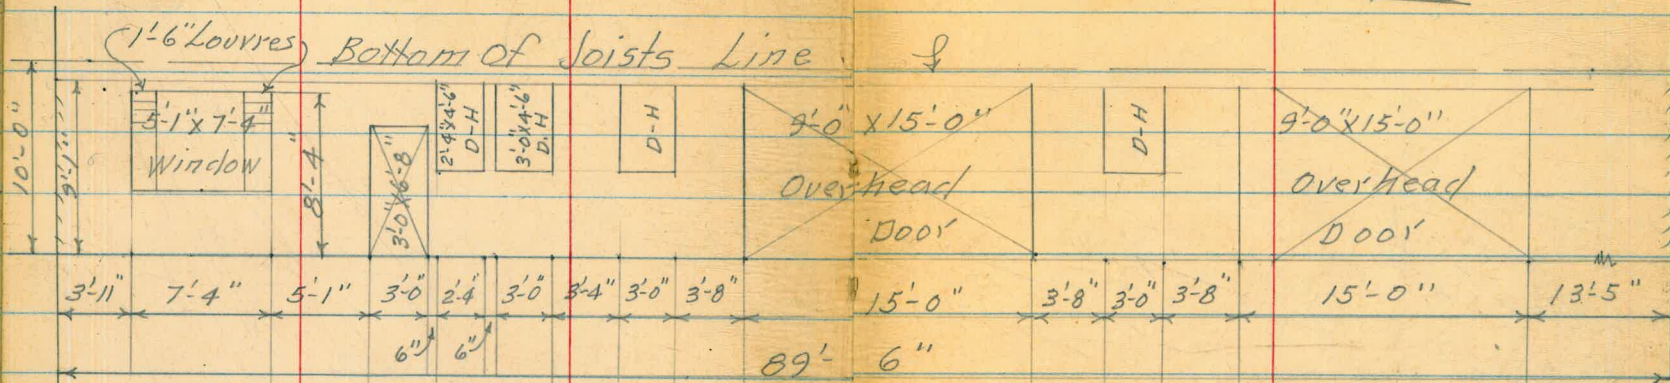 1'-6" Louvres
Bottom of Joists Line
10'-0"
9'-1"
5'-1" x 7'-4"
Window
8'-4"
3'-0" x 6'-8"
2'-4" x 4'-6"
D-H
3'-0" x 4'-6"
D.H
D-H
9'-0" x 15'-0"
Overhead
Door
D-H
9'-0" x 15'-0"
Overhead
Door
3'-11" 7'-4" 5'-1" 3'-0" 2'-4 3'-0" 3'-4" 3'-0" 3'-8" 15'-0" 3'-8" 3'-0" 3'-8" 15'-0" 13'-5"
6" 6"
89'-6"